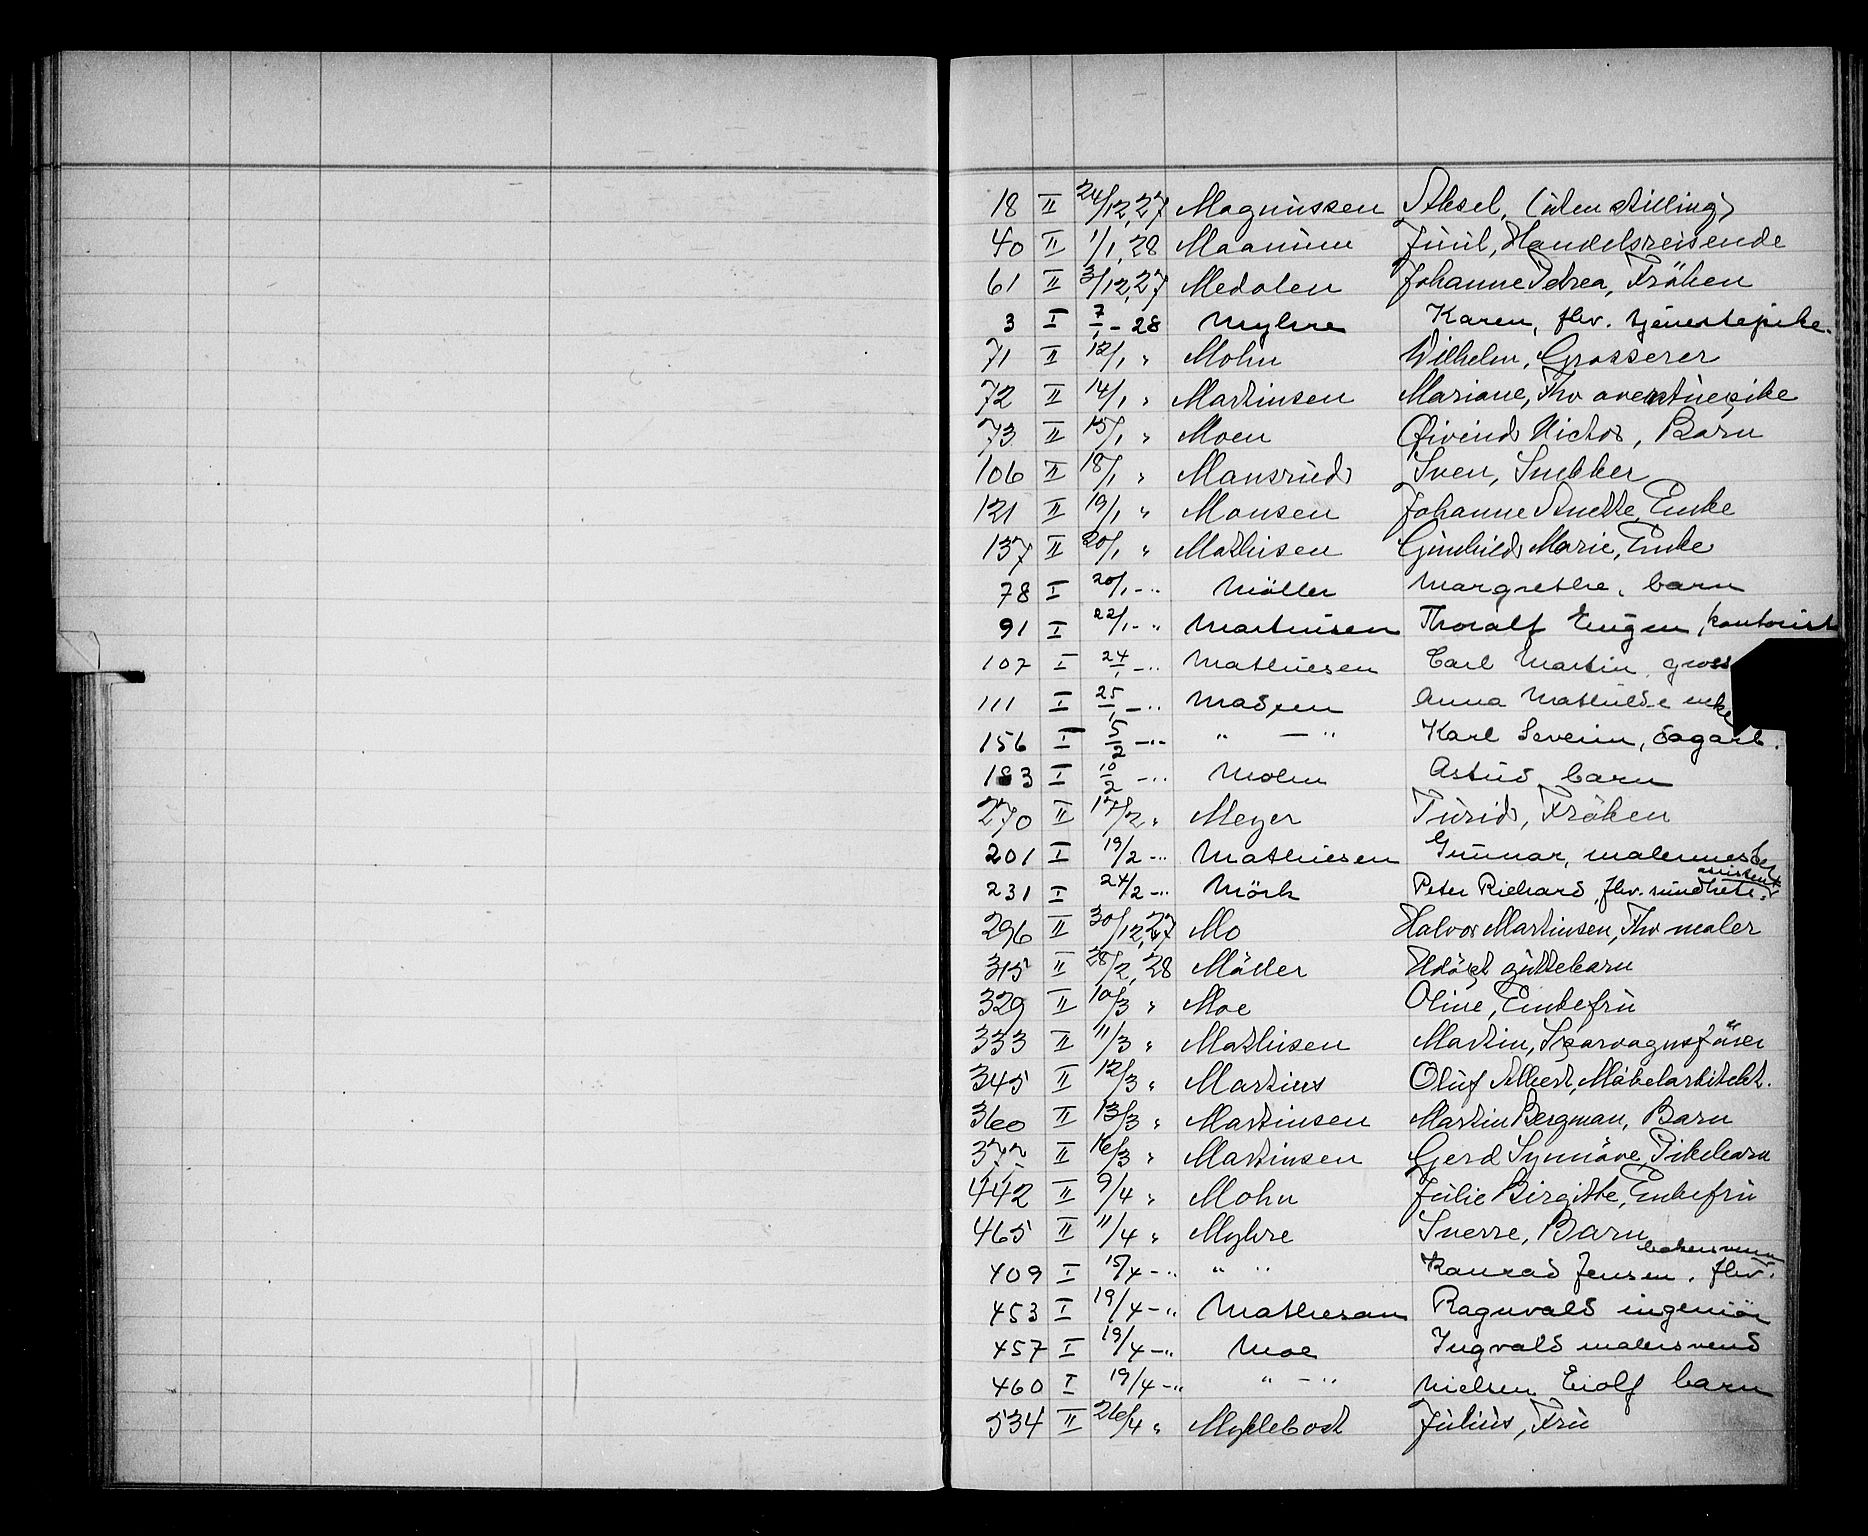 18 II 24/12,27 Magnussen Aksel, (uten stilling)
40 II 1/1,28 Maanum Juul, Handelsreisende
61 II 3/12,27 Medalen Johanne Petrea, Fröken
3 I 7/1-28 Myhre Karen, fhv. tjenestepike.
71 II 12/1 " Mohn Wilhelm, Grosserer
72 II 14/1 " Martinsen Mariane, Fhv
73 II 15/1 " Moen Øivind Victor, Barn
106 II 18/1 " Mansrud Sven, Snekker
121 II 19/1 " Monsen Johanne Anette, Enke
137 II 20/1 " Mathisen Gunhild Marie, Enke
78 I 20/1-" Möller Margrethe, barn
91 I 22/1-" Martinsen Thoralf Eugen, kontorist
107 I 24/1-" Mathiesen Carl Martin, gross
111 I 25/1-" Madsen Anna Mathilde enke
156 I 5/2-" " — " Karl Severin, sagarb.
183 I 10/2-" Molin Astrid barn
270 II 17/2 " Meyer Turid, Fröken
201 I 19/2-" Mathiesen Gunnar, malermester
231 I 24/2-" Mörk Peter Richard, fhv. sundhets. assistent
296 II 30/12,27 Mo Halvor Martinsen, Fhv maler
315 II 28/2,28 Möller Udöpt guttebarn
329 II 10/3 " Moe Oline, Enkefru
333 II 11/3 " Mathisen Martin, Sporvognsförer
345 II 12/3 " Martius Oluf Albert, Möbelarkitekt.
360 II 13/3 " Martinsen Martin Bergman, Barn
377 II 16/3 " Martinsen Gerd Synnöve, Pikebarn
442 II 9/4 " Mohn Julie Birgitte, Enkefru
465 II 11/4 " Myhre Sverre, Barn
409 I 15/4-" " " Konrad Jensen, fhv. bakersvenn
453 I 19/4-" Mathiesen Ragnvald ingeniör
457 I 19/4-" Moe Ingvald malersvend
460 I 19/4-" " - " Nielsen Eiolf barn
534 II 26/4 " Myklebost Julius, Fru